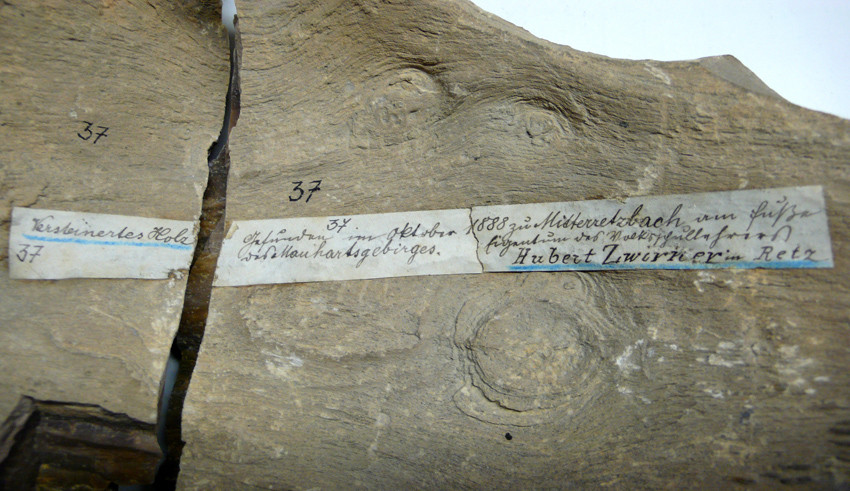 37
37
Versteinertes Holz
37
37
Gefunden im Oktober 1888 zu Mitterretzbach am Fuße
des Manhartsgebirges. Eigentum des Volksschullehrers
Hubert Zwirner in Retz